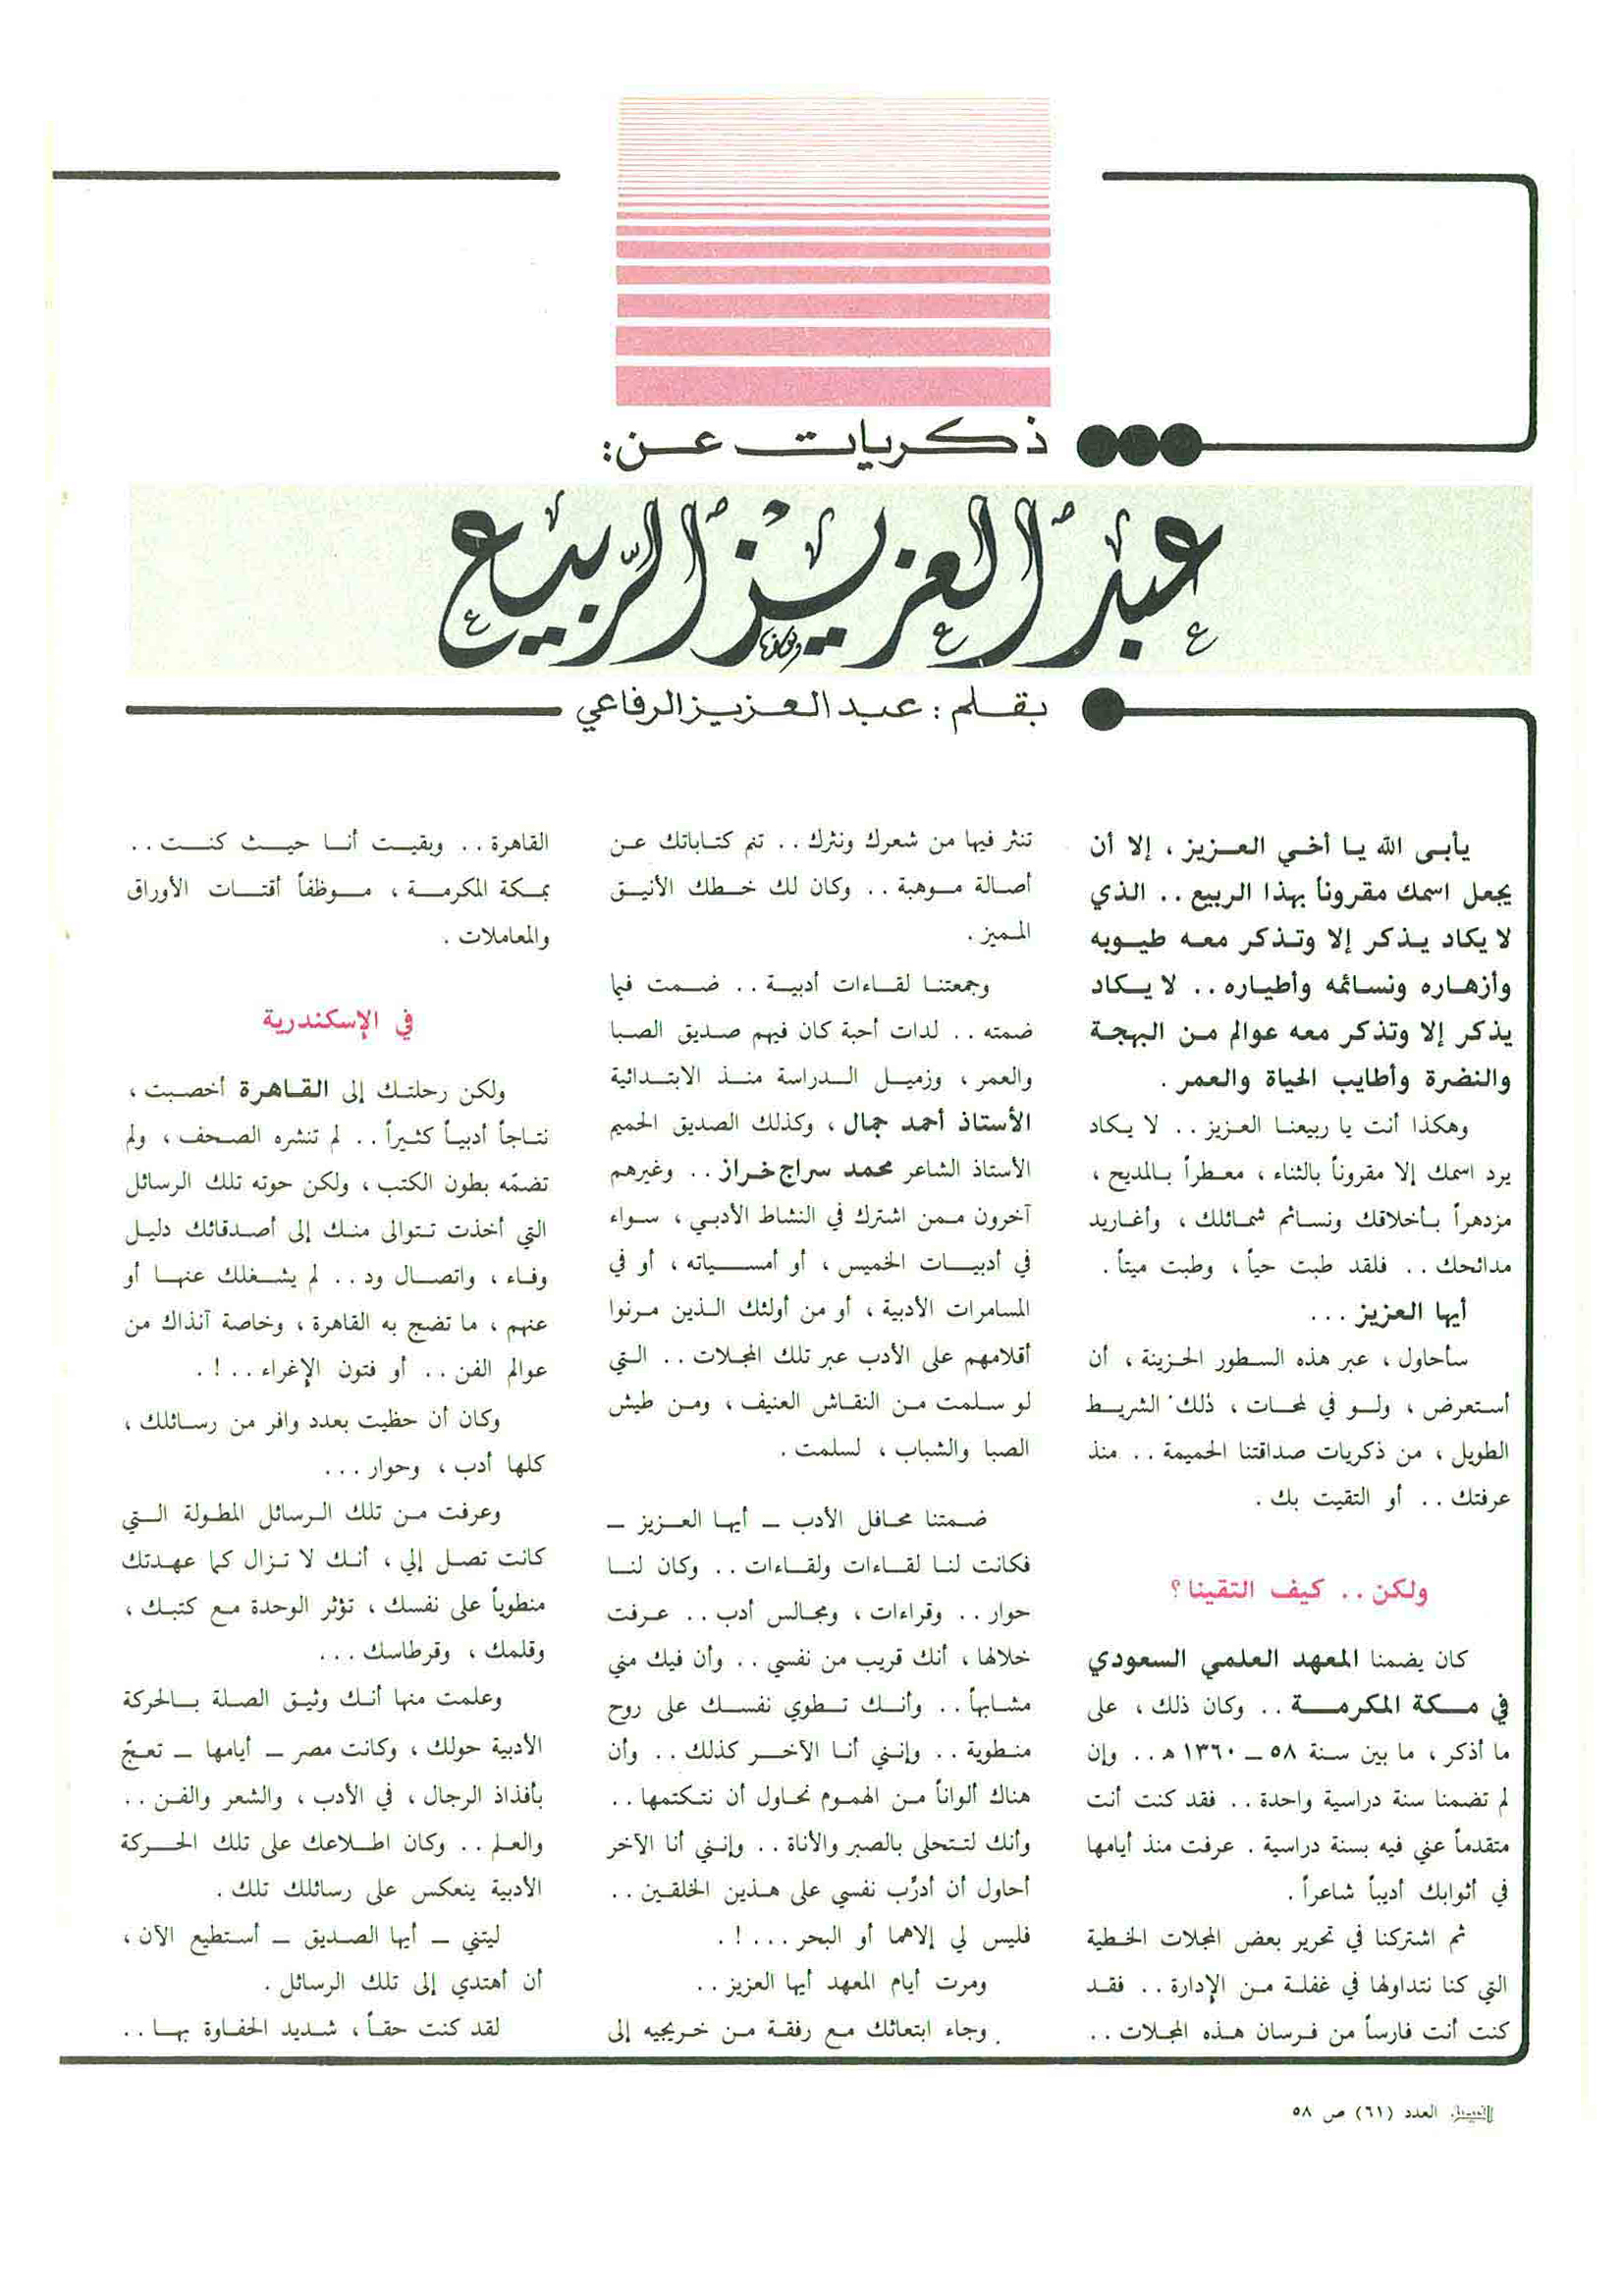 ذكريات عن:
عبد العزيز الربيع
بقلم : عبد العزيز الرفاعي
يأبى الله يا أخي العزيز ، إلا أن
يجعل اسمك مقروناً بهذا الربيع . . الذي
لا يكاد يذكر إلا وتذكر معه طيوبه
وأزهاره ونسائمه وأطياره . . لا يكاد
يذكر إلا وتذكر معه عوالم من البهجة
والنضرة وأطايب الحياة والعمر .
وهكذا أنت يا ربيعنا العزيز . . لا يكاد
يرد اسمك إلا مقروناً بالثناء ، معطراً بالمديح ،
مزدهراً بأخلاقك ونسائم شمائلك ، وأغاريد
مدائحك . . فلقد طبت حياً ، وطبت ميتاً .
أيها العزيز . . .
سأحاول ، عبر هذه السطور الحزينة ، أن
أستعرض ، ولو في لمحات ، ذلك الشريط
الطويل ، من ذكريات صداقتنا الحميمة . . منذ
عرفتك . . أو التقيت بك .
ولكن . . كيف التقينا ؟
كان يضمنا المعهد العلمي السعودي
في مكة المكرمة . . وكان ذلك ، على
ما أذكر ، ما بين سنة ٥٨ ــ ١٣٦٠ هـ . . وإن
لم تضمنا سنة دراسية واحدة . . فقد كنت أنت
متقدماً عني فيه بسنة دراسية . عرفت منذ أيامها
في أثوابك أديباً شاعراً .
ثم اشتركنا في تحرير بعض المجلات الخطية
التي كنا نتداولها في غفلة من الإدارة . . فقد
كنت أنت فارساً من فرسان هذه المجلات . .
تنثر فيها من شعرك ونثرك . . تنم كتاباتك عن
أصالة موهبة . . وكان لك خطك الأنيق
المميز .
وجمعتنا لقاءات أدبية . . ضمت فيما
ضمته . . لدات أحبة كان فيهم صديق الصبا
والعمر ، وزميل الدراسة منذ الابتدائية
الأستاذ أحمد جمال ، وكذلك الصديق الحميم
الأستاذ الشاعر محمد سراج خراز . . وغيرهم
آخرون ممن اشترك في النشاط الأدبي ، سواء
في أدبيات الخميس ، أو أمسياته ، أو في
المسامرات الأدبية ، أو من أولئك الذين مرنوا
أقلامهم على الأدب عبر تلك المجلات . . التي
لو سلمت من النقاش العنيف ، ومن طيش
الصبا والشباب ، لسلمت .
ضمتنا محافل الأدب ــ أيها العزيز ــ
فكانت لنا لقاءات ولقاءات . . وكان لنا
حوار . . وقراءات ، ومجالس أدب . . عرفت
خلالها ، أنك قريب من نفسي . . وأن فيك مني
مشابهاً . . وأنك تطوي نفسك على روح
منطوية . . وإنني أنا الآخر كذلك . . وأن
هناك ألواناً من الهموم نحاول أن نتكتمها . .
وأنك لتتحلى بالصبر والأناة . . وإنني أنا الآخر
أحاول أن أدرِّب نفسي على هذين الخلقين . .
فليس لي إلاهما أو البحر . . . ! .
ومرت أيام المعهد أيها العزيز . .
وجاء ابتعاثك مع رفقة من خريجيه إلى
القاهرة . . وبقيت أنا حيث كنت . .
بمكة المكرمة ، موظفاً أقتات الأوراق
والمعاملات .
في الإسكندرية
ولكن رحلتك إلى القاهرة أخصبت ،
نتاجاً أدبياً كثيراً . . لم تنشره الصحف ، ولم
تضمّه بطون الكتب ، ولكن حوته تلك الرسائل
التي أخذت تتوالى منك إلى أصدقائك دليل
وفاء ، واتصال ود . . لم يشغلك عنها أو
عنهم ، ما تضج به القاهرة ، وخاصة آنذاك من
عوالم الفن . . أو فتون الإغراء . . ! .
وكان أن حظيت بعدد وافر من رسائلك ،
كلها أدب ، وحوار . . .
وعرفت من تلك الرسائل المطولة التي
كانت تصل إلي ، أنك لا تزال كما عهدتك
منطوياً على نفسك ، تؤثر الوحدة مع كتبك ،
وقلمك ، وقرطاسك . . .
وعلمت منها أنك وثيق الصلة بالحركة
الأدبية حولك ، وكانت مصر ــ أيامها ــ تعجّ
بأفذاذ الرجال ، في الأدب ، والشعر والفن . .
والعلم . . وكان اطلاعك على تلك الحركة
الأدبية ينعكس على رسائلك تلك .
ليتني ــ أيها الصديق ــ أستطيع الآن ،
أن أهتدي إلى تلك الرسائل .
لقد كنت حقاً ، شديد الحفاوة بها . .
الفيصل العدد (٦١) ص ٥٨